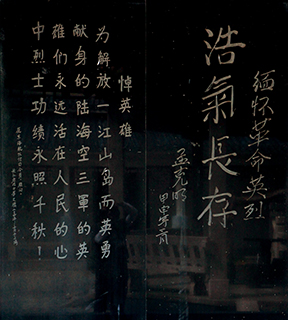 缅怀革命英烈
浩氣長存
孟克明
悼英雄
为解放一江山岛而英勇
献身的陆海空三軍的英
雄们永远活在人民的心
中烈士功绩永照千秋！